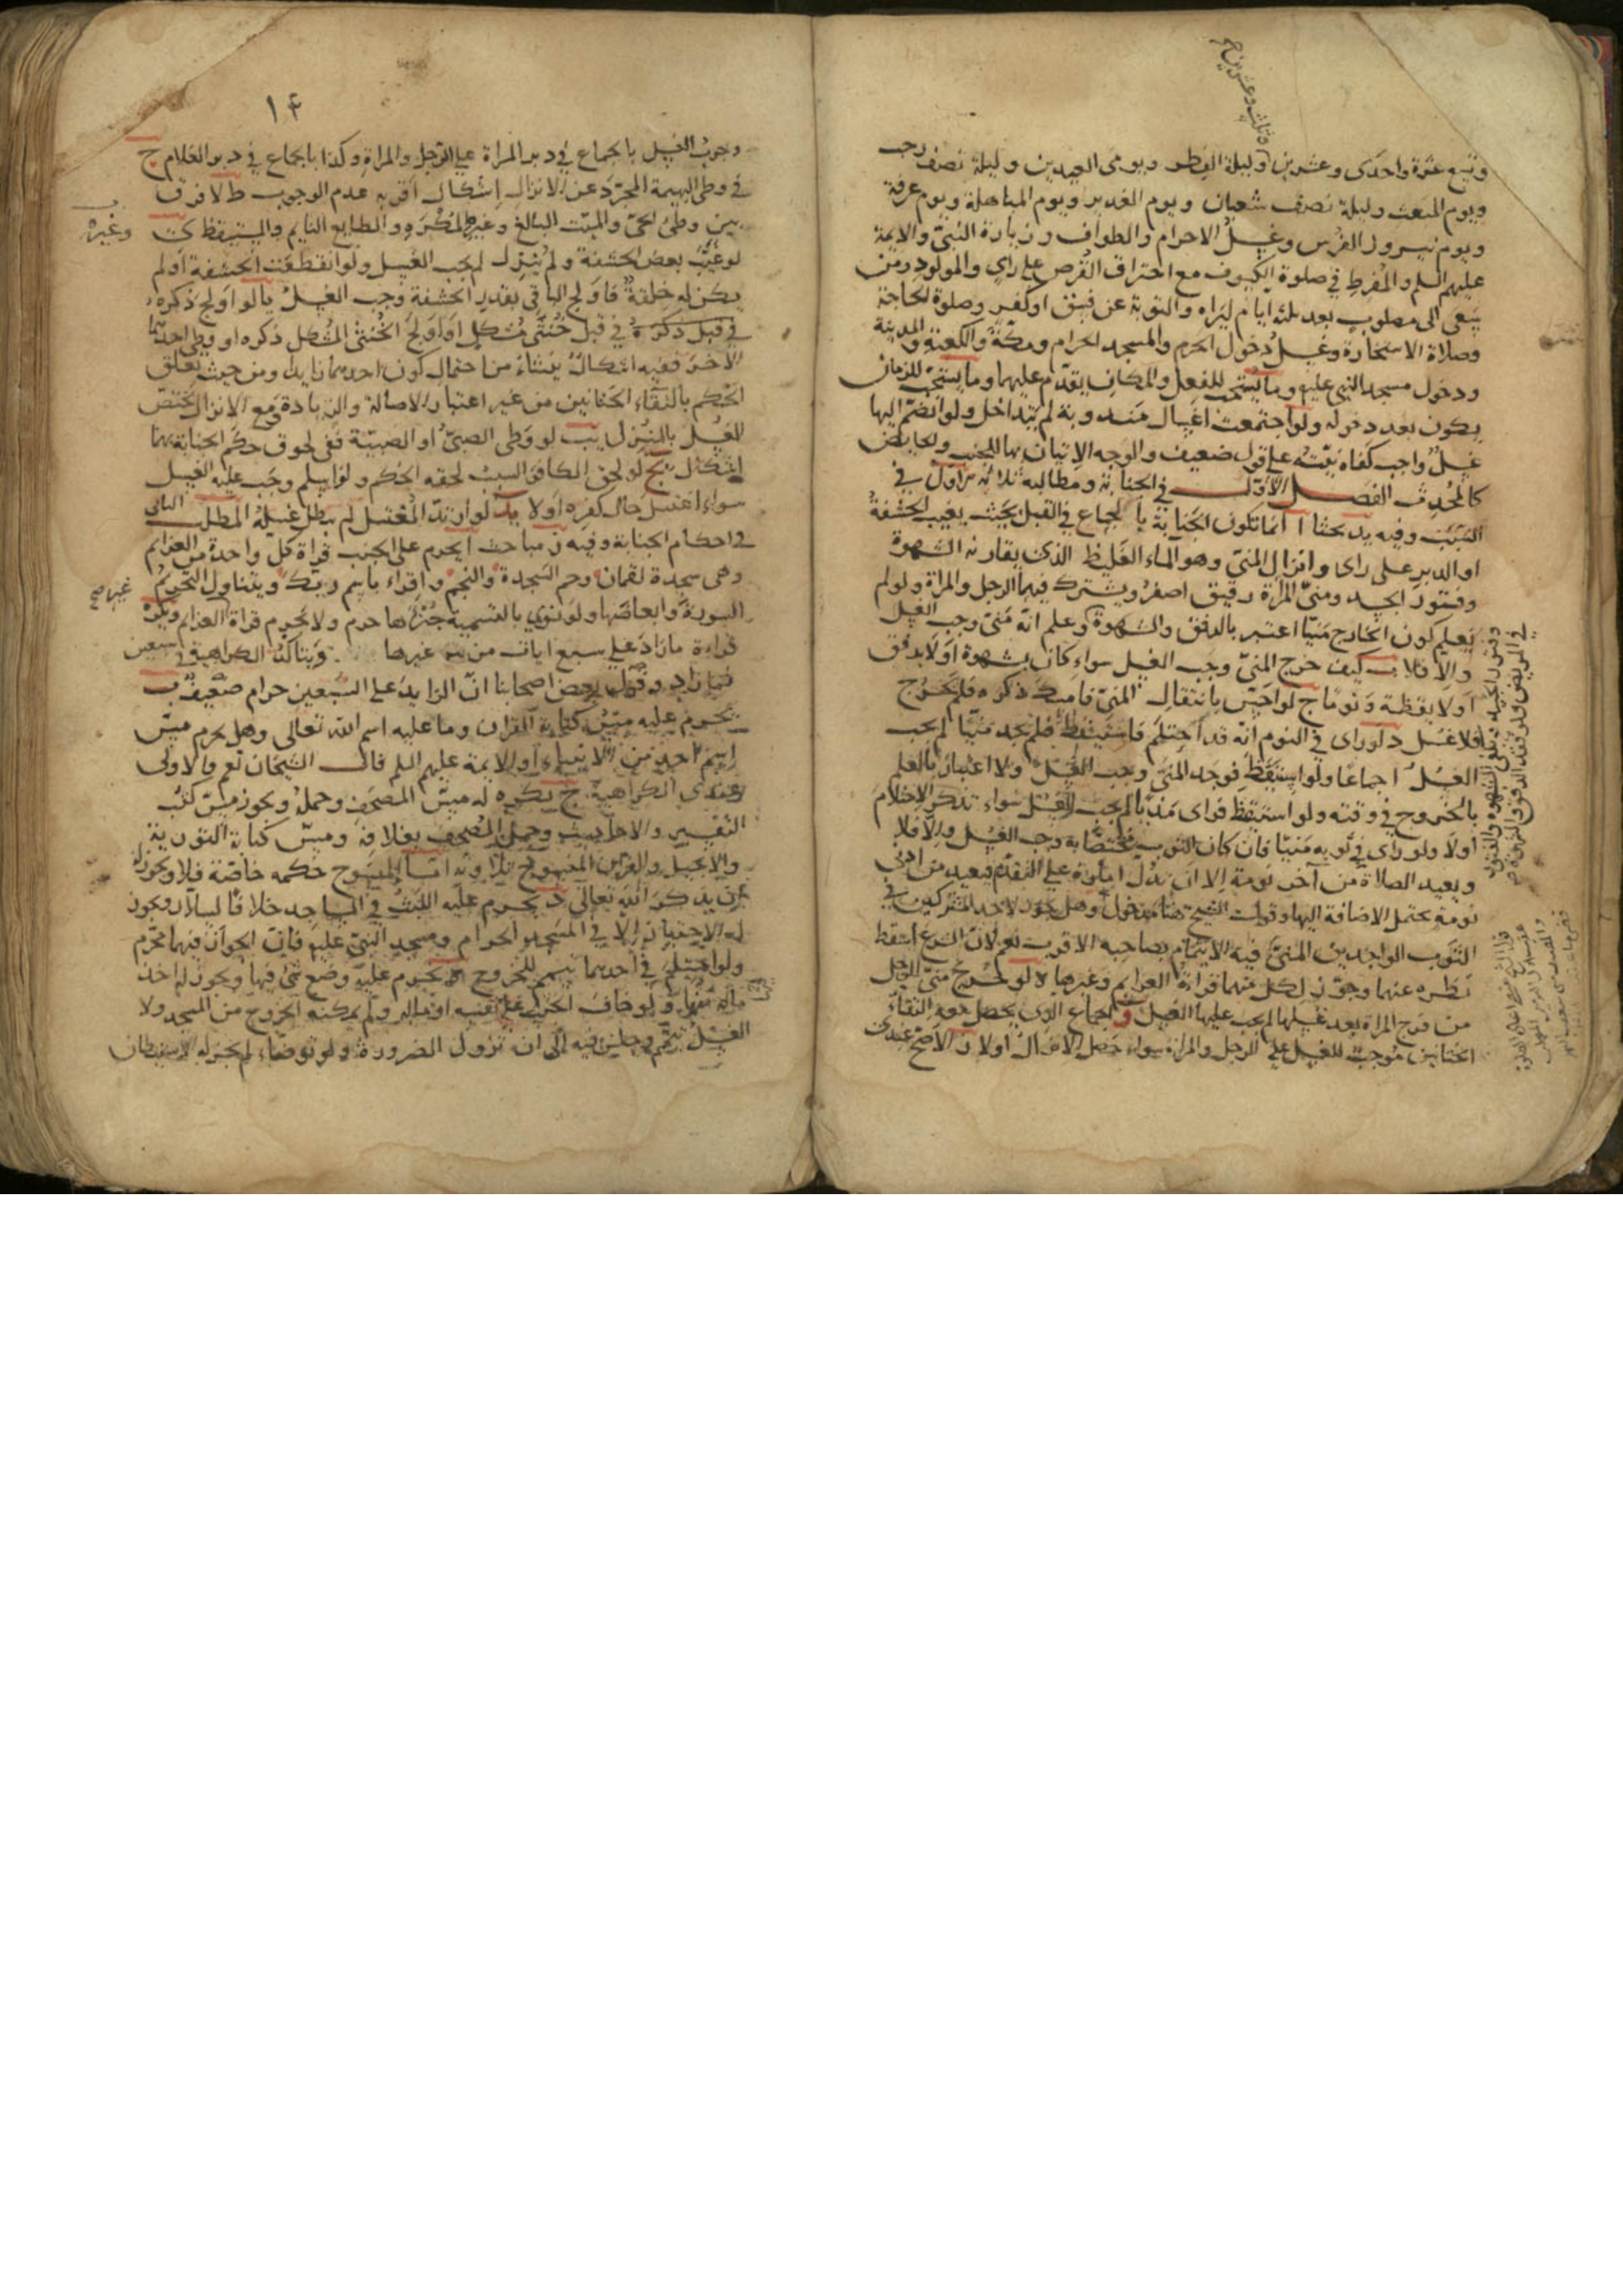 وتسع عشرة واحدى وعشرين وليلة الفطر ويومى العيدين وليلة نصف رجب
ويوم المبعث وليلة نصف شعبان ويوم الغدير ويوم المباهلة ويوم عرفة
ويوم نيروز الفرس وغسل الاحرام والطواف وزيارة النبى والايمة
عليهم السلم والمفرط فى صلوة الكسوف مع احتراق القرص على راى والمولود ومن
يسعى الى مصلوب بعد ثلثة ايام ليراه والتوبة عن فسق او كفر وصلوة لحاجة
وصلاة الاستخارة وغسل دخول الحرم والمسجد الحرام ومكة والكعبة والمدينة
ودخول مسجد النبى عليه وما يستحب للفعل والمكان يقدم عليهما وما يستحب للزمان
يكون بعد دخوله ولو اجتمعت اغسال مندوبة لم يتداخل ولو انضم اليها
غسل واجب كفاه نيته على قول ضعيف والوجه الاتيان بها للجنب والحايض
كالمحدث الفصل الاول فى الجنابة ومطالبه ثلاثة الاول فى
السبب وفيه يد بحثا ا انما تكون الجنابة بالجماع فى القبل بحيث يغيب الحشفة
او الدبر على راى وانزال المنى وهو الماء الغليظ الذى يقارنه الشهوة
وفتور الجسد ومنى المراة رقيق اصفر ويشترك فيهما الرجل والمراة ولو لم
يعلم كون الخارج منيا اعتبر بالدفق والشهوة وعلم انه منى وجب الغسل
والا فلا ب كيف خرج المنى وجب الغسل سواء كان بشهوة اولا بدفق
اولا يقظة ونوما ج لو احس بانتقال المنى فامسك ذكره فلم يخرج
فلا غسل د لو راى فى النوم انه قد احتلم فاستيقظ فلم يجد منيا لم يجب
الغسل اجماعا ولو استيقظ فوجد المنى وجب الغسل ولا اعتبار بالعلم
بالخروج فى وقته ولو استيقظ فراى مذيا لم يجب الغسل سواء تذكر الاحتلام
اولا ولو راى فى ثوبه منيا فان كان الثوب مختصا به وجب الغسل والا فلا
ويعيد الصلاة من آخر نومة الا ان تدل امارة على التقدم فيعيد من ادنى
نومة يحتمل الاضافة اليها وقول الشيخ هنا مدخول وهل يجوز لاحد المشتركين فى
الثوب الواجدين المنى فيه الايتمام بصاحبه الاقرب نعم لان الشرع اسقط
نظره عنهما وجوز لكل منهما قراءة العزايم وغيرها ه لو خرج منى الرجل
من فرج المراة بعد غسلها لم يجب عليها الغسل و الجماع الذى يحصل معه التقاء
الختانين موجب للغسل على الرجل والمراة سواء حصل الانزال اولا ز الاصح عندى
١٤
وجوب الغسل بالجماع فى دبر المراة على الرجل والمراة وكذا بالجماع فى دبر الغلام ح
فى وطى البهيمة المجرد عن الانزال اشكال اقربه عدم الوجوب ط لا فرق
بين وطى الحى والميت البالغ وغيره والمكره والطايع النايم والمستيقظ ى
وغيره
لو غيب بعض الحشفة ولم ينزل لم يجب الغسل ولو انقطعت الحشفة او لم
يكن له خلقة فاولج الباقى بقدر الحشفة وجب الغسل يا لو اولج ذكره
فى قبل خنثى مشكل او اولج الخنثى المشكل ذكره او وطى احدهما
الآخر ففيه اشكال ينشاء من احتمال كون احديهما زايدا ومن حيث تعلق
الحكم بالتقاء الختانين من غير اعتبار الاصالة والزيادة ومع الانزال يختص
الغسل بالمنزل يب لو وطى الصبى او الصبية ففى لحوق حكم الجنابة بهما
اشكال يج لو لحق الكافر السبب لحقه الحكم ولو اسلم وجب عليه الغسل
سواء اغتسل حال كفره اولا يد لو ارتد المغتسل لم يبطل غسله المطلب الثانى
فى احكام الجنابة وفيه ز مباحث ا يحرم على الجنب قراة كل واحدة من العزايم
وهى سجدة لقمان وحم السجدة والنجم واقراء باسم ربك ويتناول التحريم
السورة وابعاضها ولو نوى بالتسمية جزءها حرم ولا يحرم قراة العزايم ويكره
غيرها صح
قراءة ما زاد على سبع ايات من غيرها ويتاكد الكراهية فى سبعين
فما زاد وقول بعض اصحابنا ان الزايد على السبعين حرام ضعيف ب
يحرم عليه مس كتابة القران وما عليه اسم الله تعالى وهل يحرم مس
اسم احد من الانبياء او الايمة عليهم السلم قال الشيخان نعم والاولى
عندى الكراهية ج يكره له مس المصحف وحمله ويجوز مس كتب
التفسير والاحاديث وحمل المصحف بغلافه ومس كتابة التورية
والانجيل والقران المنسوخ تلاوته اما المنسوخ حكمه خاصة فلا ويجوز له
ان يذكر الله تعالى د يحرم عليه اللبث فى المساجد خلافا لسلار ويجوز
له الاجتياز الا فى المسجد الحرام ومسجد النبى عليه فان الجواز فيهما محرم
ولو احتلم فى احدهما تيمم للخروج ه يحرم عليه وضع شئ فيها ويجوز له اخذ
ماله منها و لو خاف الجنب على نفسه او ماله ولم يمكنه الخروج من المسجد ولا
الغسل تيمم وجلس فيه الى ان تزول الضرورة ولو توضاء لم يجز له الاستيطان